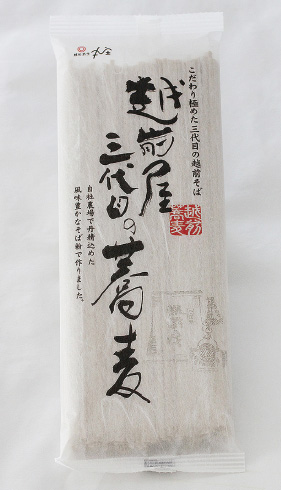 こだわり極めた三代目の越前そば
越前屋
三代目の蕎麦
越前
蕎麦
自社農場で丹精込めた
風味豊かなそば粉で作りました。